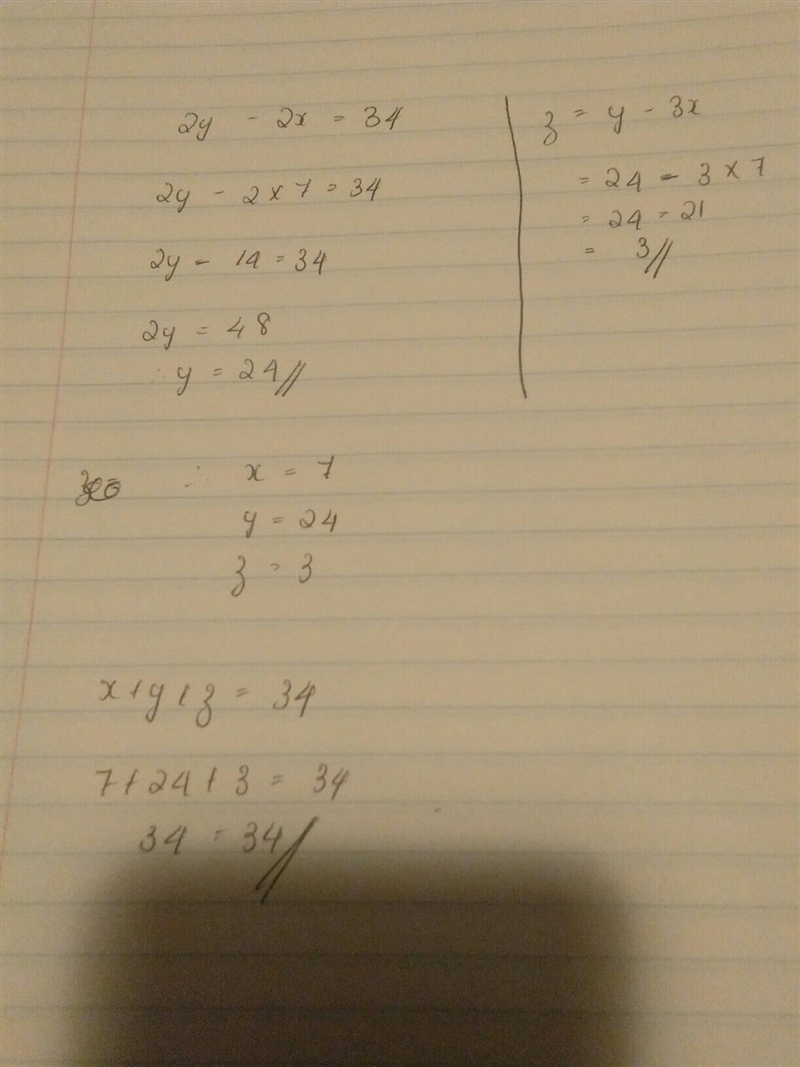 2y - 2x = 34
2y - 2 x 7 = 34
2y - 14 = 34
2y = 48
∴ y = 24 //
z = y - 3x
= 24 - 3 x 7
= 24 - 21
= 3 //
∴ x = 7
y = 24
z = 3
x + y + z = 34
7 + 24 + 3 = 34
34 = 34 //